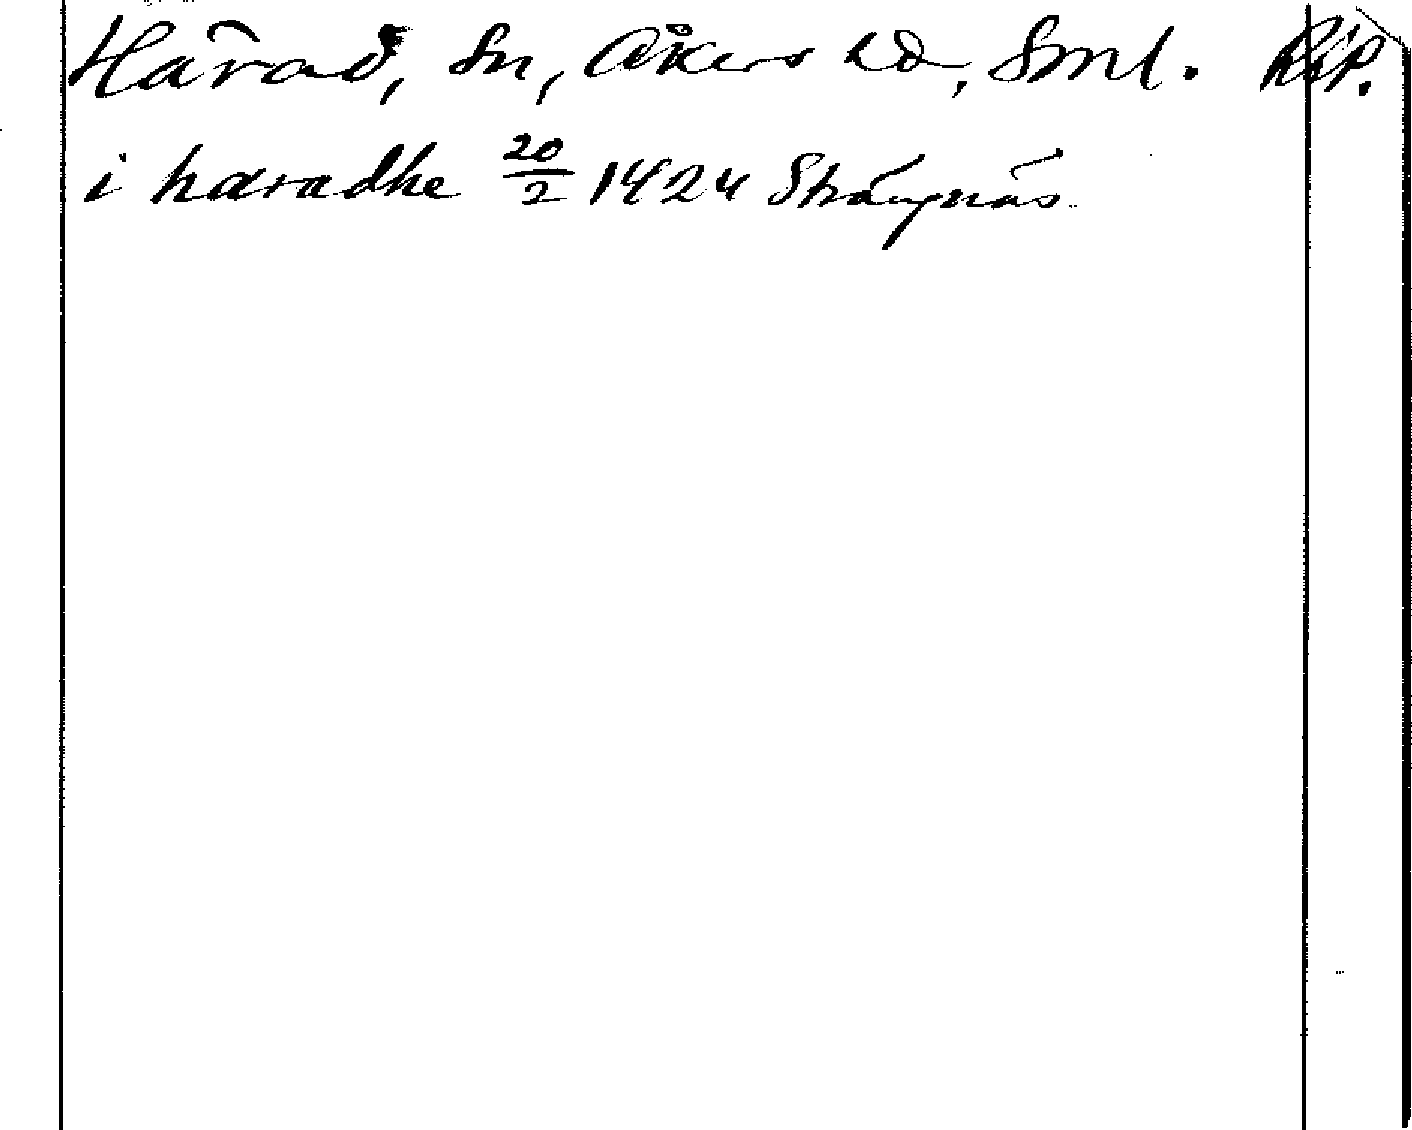 Härad, Sn, Åkers hd, Sml. Rip.
i haradhe 20/2 1424 Strängnäs